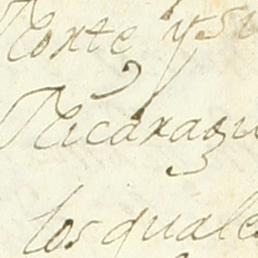 Norte y su
Nicaragu
los quale